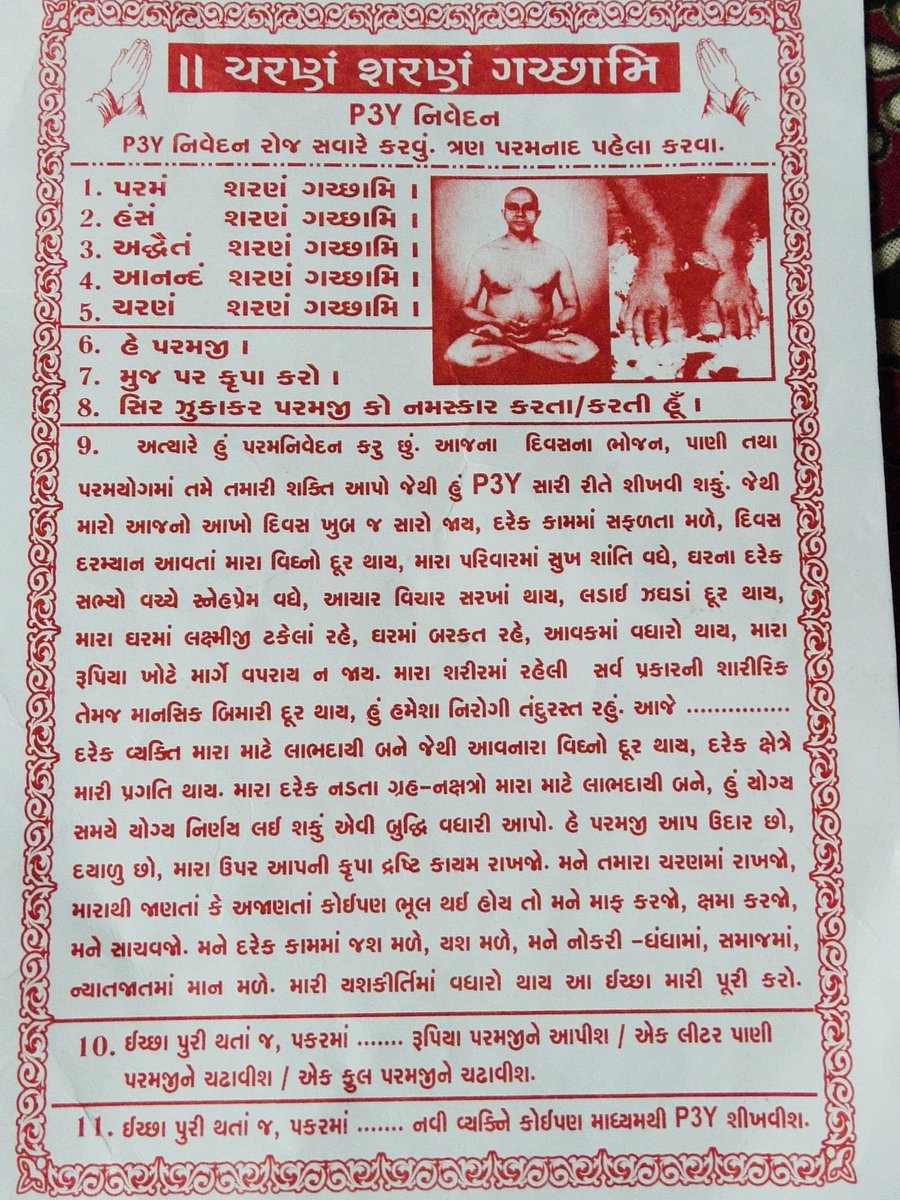 ॥ ચરણં શરણં ગચ્છામિ
P3Y નિવેદન
P3Y નિવેદન રોજ સવારે કરવું. ત્રણ પરમનાદ પહેલા કરવા.
1. પરમં શરણં ગચ્છામિ ।
2. હંસં શરણં ગચ્છામિ ।
3. અદ્વૈતં શરણં ગચ્છામિ ।
4. આનન્દં શરણં ગચ્છામિ ।
5. ચરણં શરણં ગચ્છામિ ।
6. હે પરમજી ।
7. મુજ પર કૃપા કરો ।
8. સિર ઝુકાકર પરમજી કો નમસ્કાર કરતા/કરતી હૂઁ ।
9. અત્યારે હું પરમનિવેદન કરુ છું. આજના દિવસના ભોજન, પાણી તથા
પરમયોગમાં તમે તમારી શક્તિ આપો જેથી હું P3Y સારી રીતે શીખવી શકું. જેથી
મારો આજનો આખો દિવસ ખુબ જ સારો જાય, દરેક કામમાં સફળતા મળે, દિવસ
દરમ્યાન આવતાં મારા વિઘ્નો દૂર થાય, મારા પરિવારમાં સુખ શાંતિ વધે, ઘરના દરેક
સભ્યો વચ્ચે સ્નેહપ્રેમ વધે, આચાર વિચાર સરખાં થાય, લડાઈ ઝઘડાં દૂર થાય,
મારા ઘરમાં લક્ષ્મીજી ટકેલાં રહે, ઘરમાં બરકત રહે, આવકમાં વધારો થાય, મારા
રૂપિયા ખોટે માર્ગે વપરાય ન જાય. મારા શરીરમાં રહેલી સર્વ પ્રકારની શારીરિક
તેમજ માનસિક બિમારી દૂર થાય, હું હમેશા નિરોગી તંદુરસ્ત રહું. આજે ...............
દરેક વ્યક્તિ મારા માટે લાભદાયી બને જેથી આવનારા વિઘ્નો દૂર થાય, દરેક ક્ષેત્રે
મારી પ્રગતિ થાય. મારા દરેક નડતા ગ્રહ-નક્ષત્રો મારા માટે લાભદાયી બને, હું યોગ્ય
સમયે યોગ્ય નિર્ણય લઈ શકું એવી બુદ્ધિ વધારી આપો. હે પરમજી આપ ઉદાર છો,
દયાળુ છો, મારા ઉપર આપની કૃપા દ્રષ્ટિ કાયમ રાખજો. મને તમારા ચરણમાં રાખજો,
મારાથી જાણતાં કે અજાણતાં કોઈપણ ભૂલ થઈ હોય તો મને માફ કરજો, ક્ષમા કરજો,
મને સાચવજો. મને દરેક કામમાં જશ મળે, યશ મળે, મને નોકરી -ધંધામાં, સમાજમાં,
ન્યાતજાતમાં માન મળે. મારી યશકીર્તિમાં વધારો થાય આ ઈચ્છા મારી પૂરી કરો.
10. ઈચ્છા પુરી થતાં જ, પકરમાં ....... રૂપિયા પરમજીને આપીશ / એક લીટર પાણી
પરમજીને ચઢાવીશ / એક ફુલ પરમજીને ચઢાવીશ.
11. ઈચ્છા પુરી થતાં જ, પકરમાં ....... નવી વ્યકિને કોઈપણ માધ્યમથી P3Y શીખવીશ.